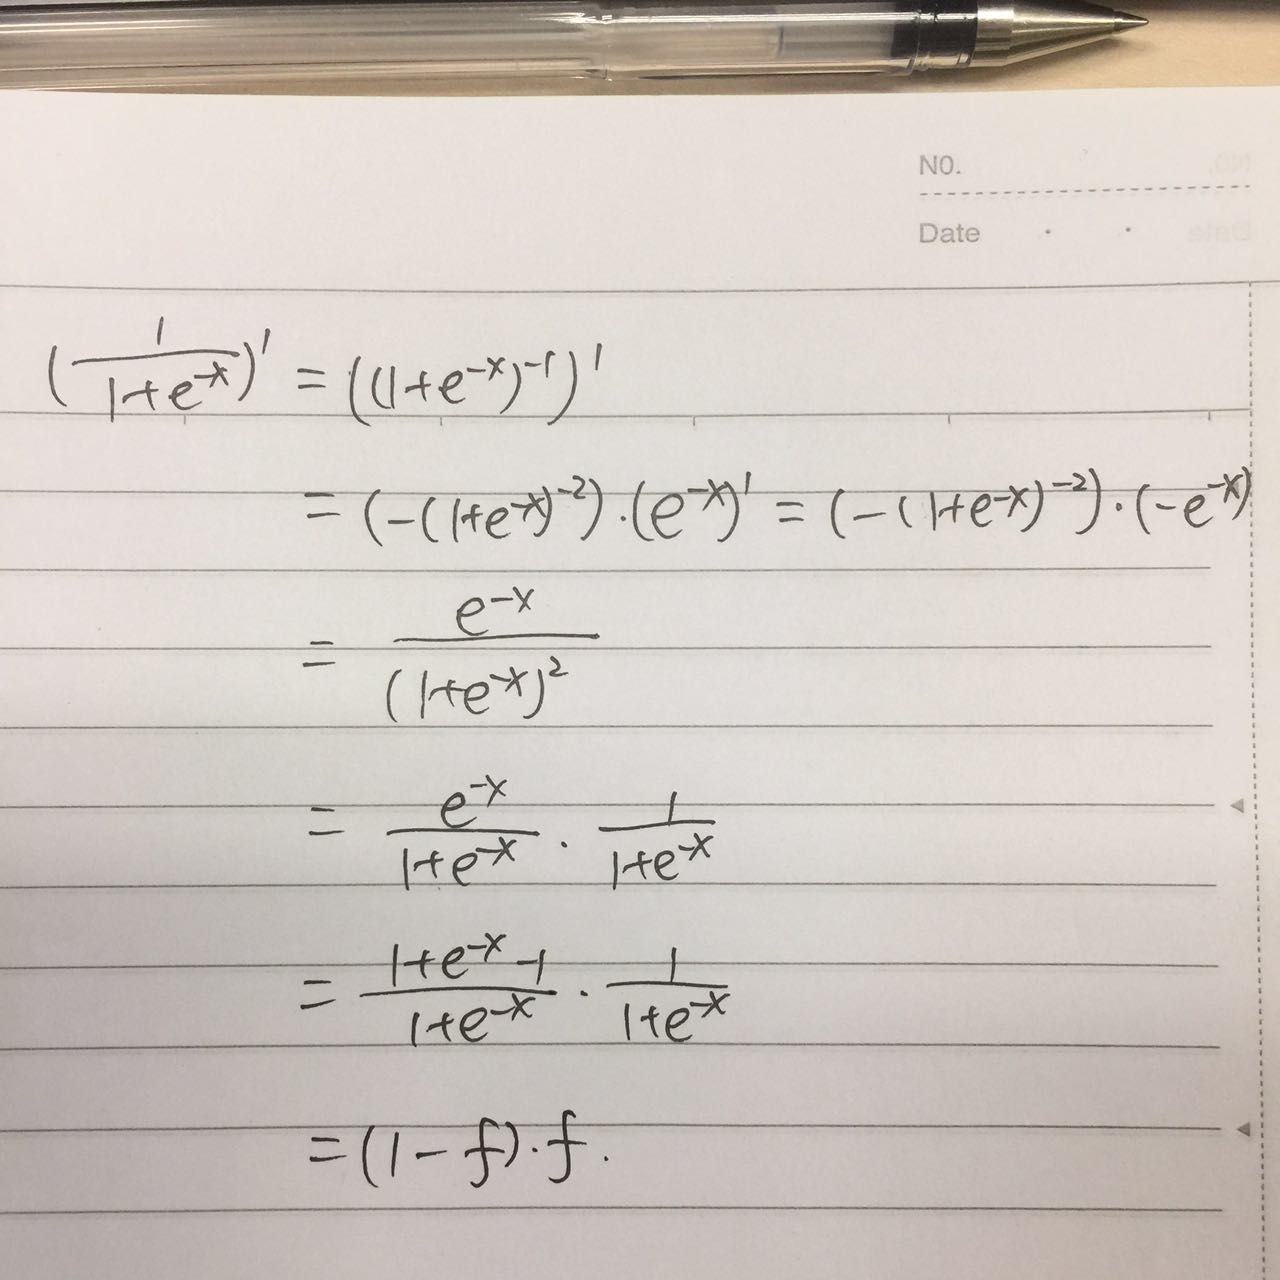 N0.
Date . .
(1/(1+e^{-x}))' = ((1+e^{-x})^{-1})'
= (-(1+e^{-x})^{-2})·(e^{-x})' = (-(1+e^{-x})^{-2})·(-e^{-x})
= e^{-x}/(1+e^{-x})^2
= e^{-x}/(1+e^{-x}) · 1/(1+e^{-x})
= (1+e^{-x}-1)/(1+e^{-x}) · 1/(1+e^{-x})
= (1-f)·f.